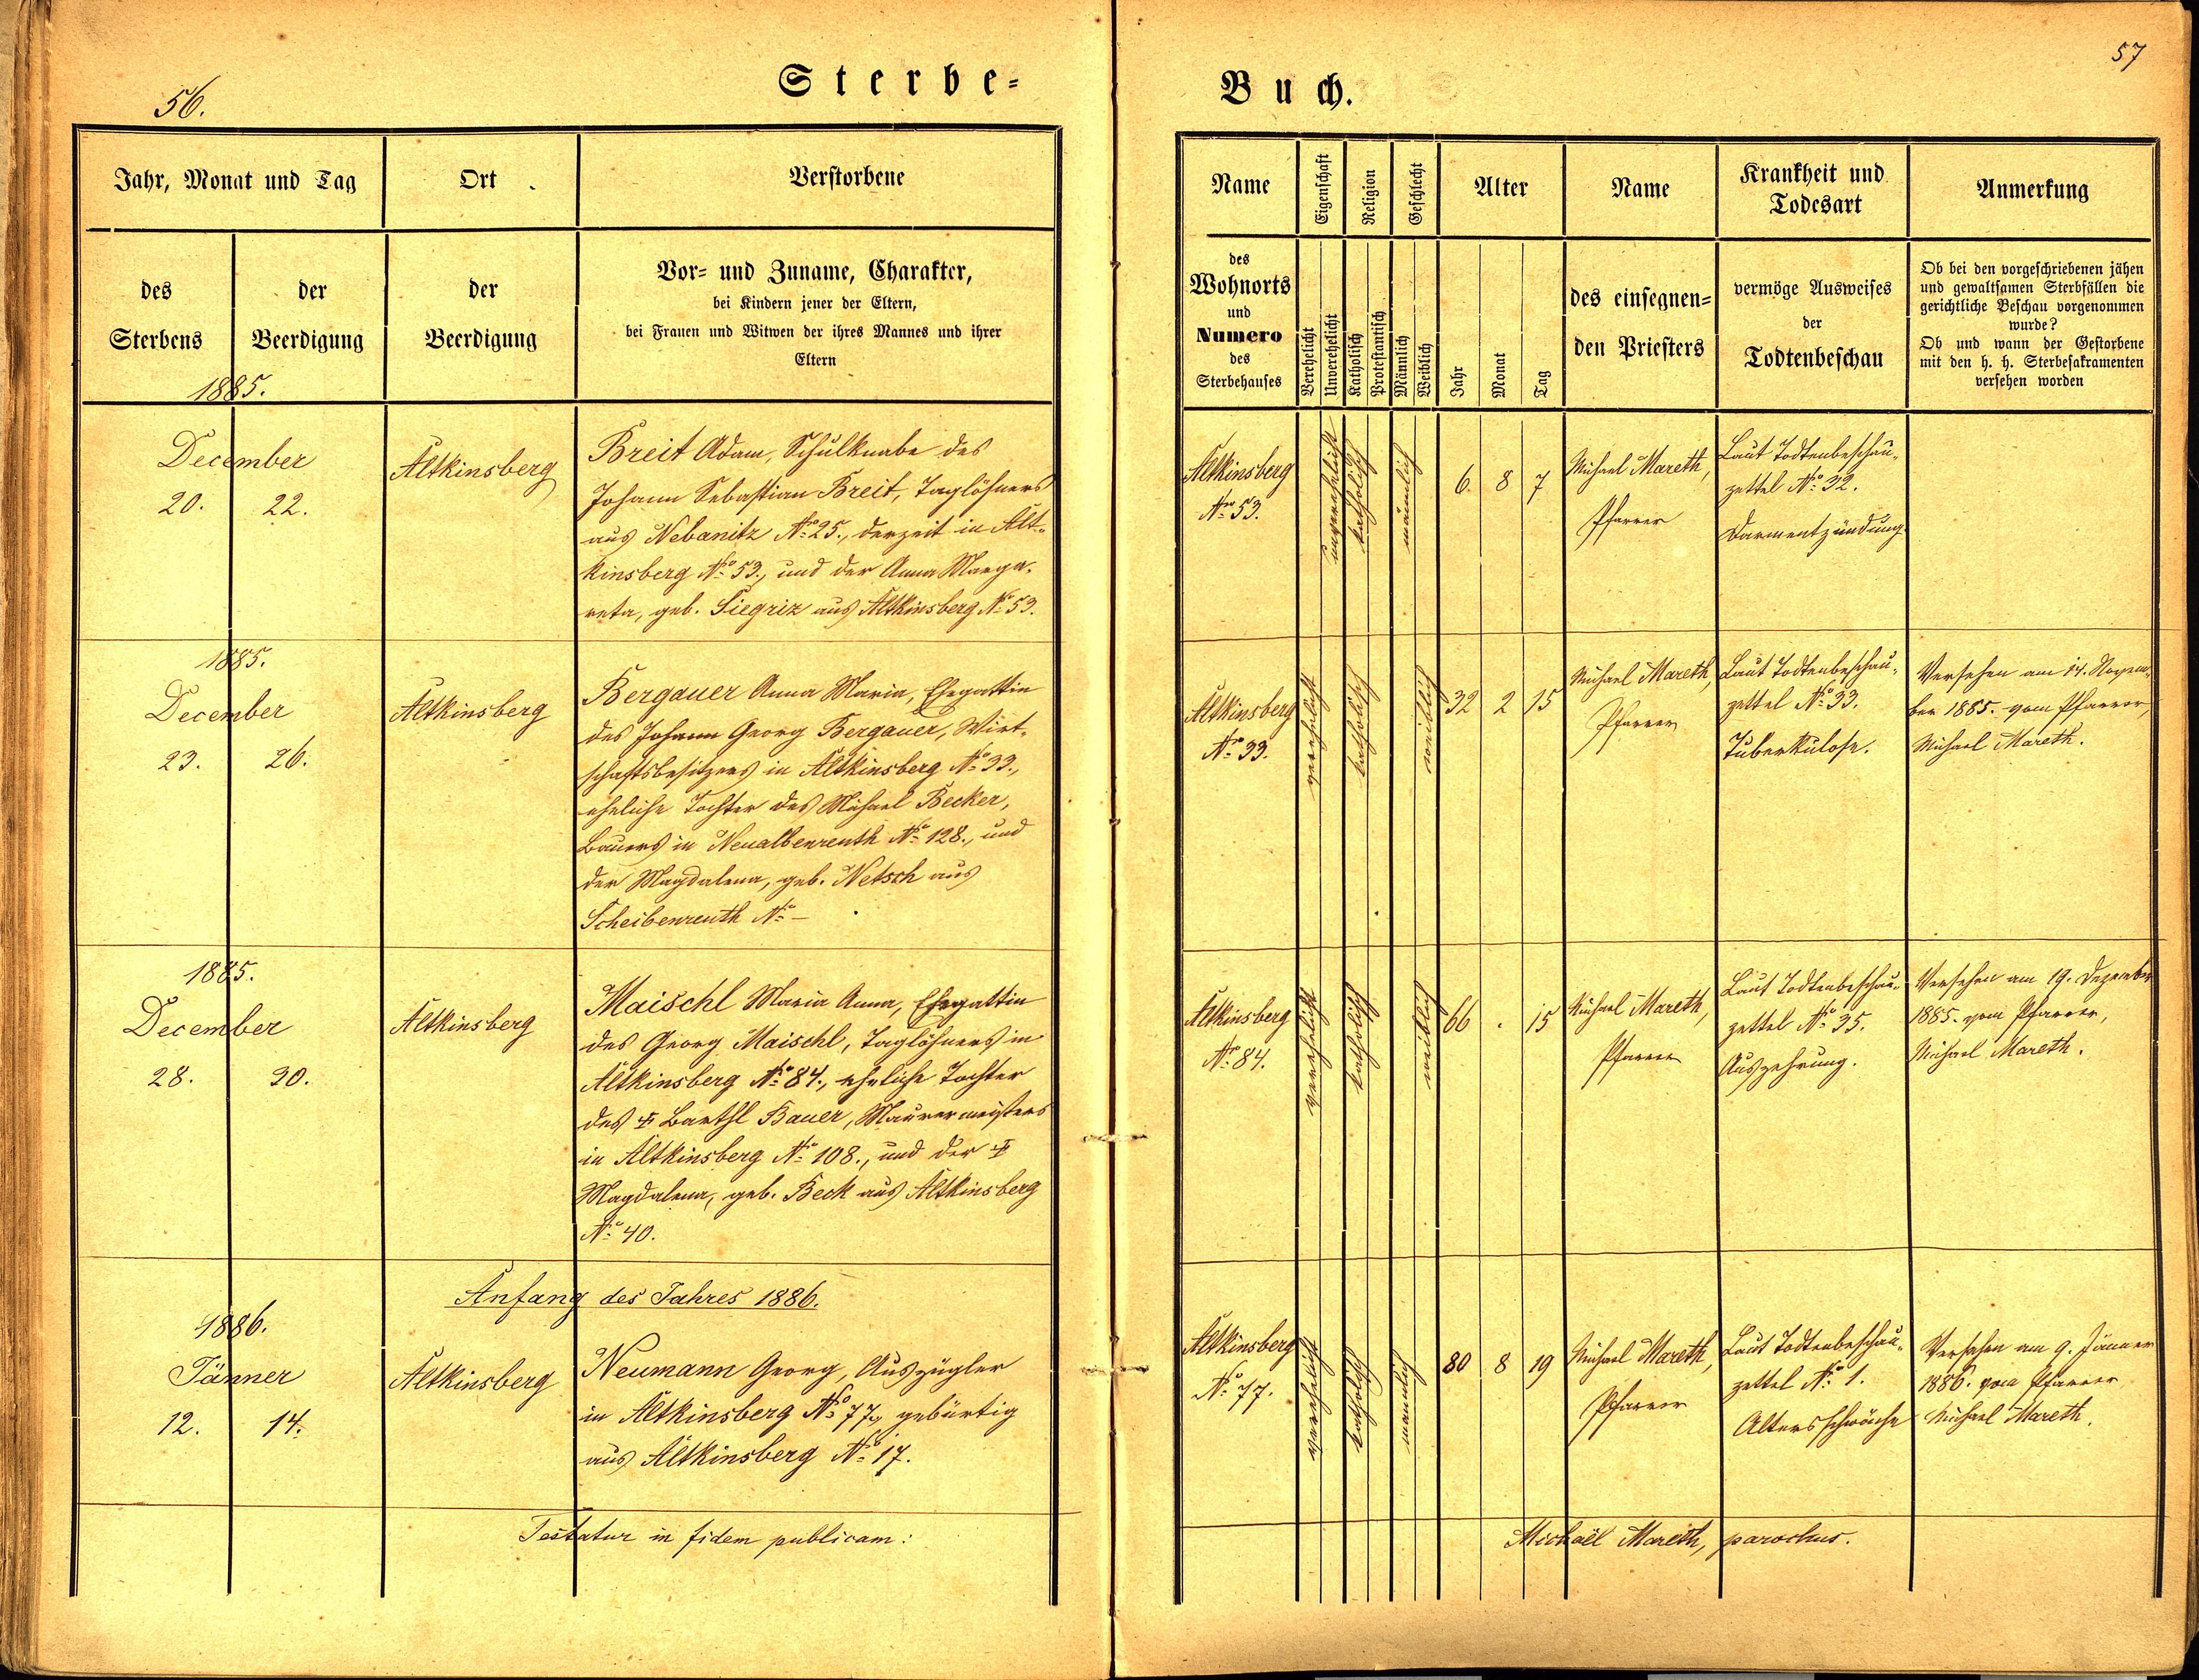 56.
Sterbe-
Jahr, Monat und Tag
Ort
Verstorbene
des
Sterbens
der
Beerdigung
der
Beerdigung
Vor- und Zuname, Charakter,
bei Kindern jener der Eltern,
bei Frauen und Witwen der ihres Mannes und ihrer
Eltern
1885.
December
20. 22.
Altkinsberg
Breit Adam, Schulknabe des
Johann Sebastian Breit, Taglöhners
aus Nebanitz No 25., derzeit in Alt-
kinsberg No 53., und der Anna Marga-
reta, geb. Siegriz aus Altkinsberg No 53.
1885.
December
23. 26.
Altkinsberg
Bergauer Anna Maria, Ehegattin
des Johann Georg Bergauer, Wirt-
schaftsbesitzers in Altkinsberg No 33.,
eheliche Tochter des Michael Becker,
Bauers in Neualbenreuth No 128., und
der Magdalena, geb. Netsch aus
Scheibenreuth No –
1885.
December
28. 30.
Altkinsberg
Maischl Maria Anna, Ehegattin
des Georg Maischl, Taglöhners in
Altkinsberg No 84., eheliche Tochter
des † Barthl Bauer, Maurermeisters
in Altkinsberg No 108., und der †
Magdalena, geb. Beck aus Altkinsberg
No 40.
Anfang des Jahres 1886.
1886.
Jänner
12. 14.
Altkinsberg
Neumann Georg, Auszügler
in Altkinsberg No 77, gebürtig
aus Altkinsberg No 17.
Testatur in fidem publicam:
57
Buch.
Name
Eigenschaft
Religion
Geschlecht
Alter
Name
Krankheit und
Todesart
Anmerkung
des
Wohnorts
und
Numero
des
Sterbehauses
Verehelicht
Unverehelicht
Katholisch
Protestantisch
Männlich
Weiblich
Jahr
Monat
Tag
des einsegnen-
den Priesters
vermöge Ausweises
der
Todtenbeschau
Ob bei den vorgeschriebenen jähen
und gewaltsamen Sterbfällen die
gerichtliche Beschau vorgenommen
wurde?
Ob und wann der Gestorbene
mit den h. h. Sterbesakramenten
versehen worden
Altkinsberg
No 53.
unverehelicht
katholisch
männlich
6 8 7
Michael Mareth,
Pfarrer
Laut Todtenbeschau-
zettel No 32.
Darmentzündung.
Altkinsberg
No 33.
verehelicht
katholisch
weiblich
32 2 15
Michael Mareth,
Pfarrer
Laut Todtenbeschau-
zettel No 33.
Tuberkulose.
Versehen am 14. Novem-
ber 1885. vom Pfarrer,
Michael Mareth.
Altkinsberg
No 84.
verehelicht
katholisch
weiblich
66 . 15
Michael Mareth,
Pfarrer
Laut Todtenbeschau-
zettel No 35.
Auszehrung.
Versehen am 19. Dezember
1885. vom Pfarrer,
Michael Mareth.
Altkinsberg
No 77.
verehelicht
katholisch
männlich
80 8 19
Michael Mareth,
Pfarrer
Laut Todtenbeschau-
zettel No 1.
Altersschwäche
Versehen am 9. Jänner
1886. vom Pfarrer
Michael Mareth.
Michaël Mareth, parochus.